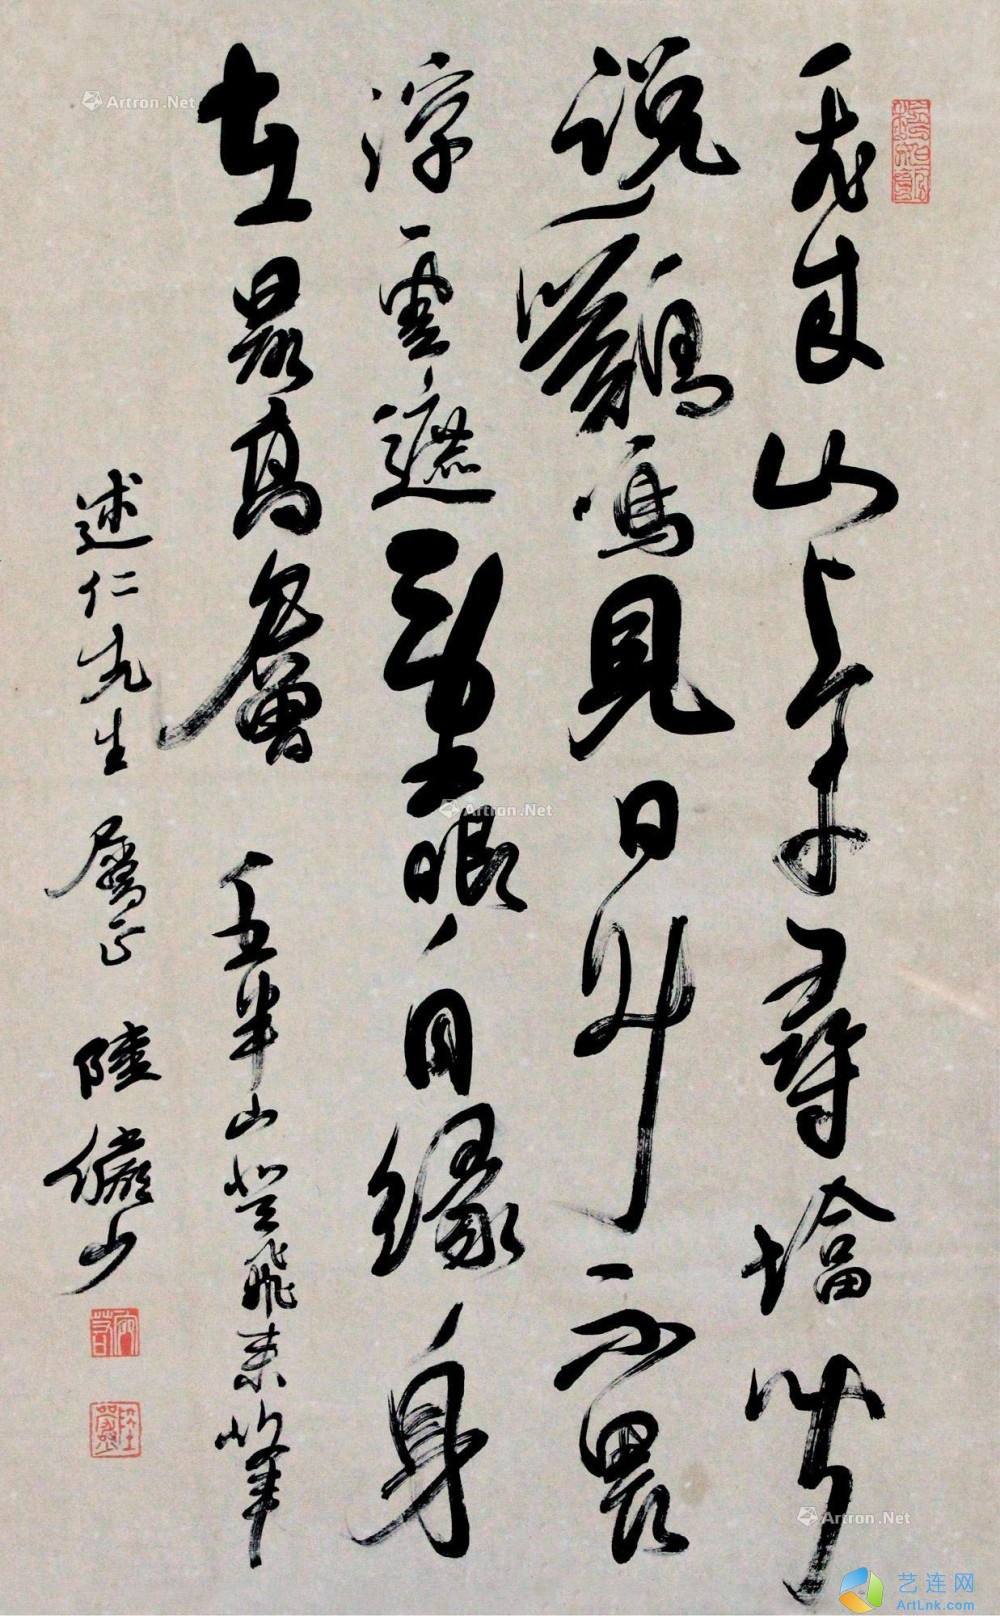 飛來山上千尋塔聞
說鷄鳴見日升不畏
浮雲遮望眼自緣身
在最高層 王半山登飛来峰
述仁先生 屬正 陸儼少
Artron.Net
Artron.Net
Artron.Net
Artron.Net
艺连网
ArtLnk.com